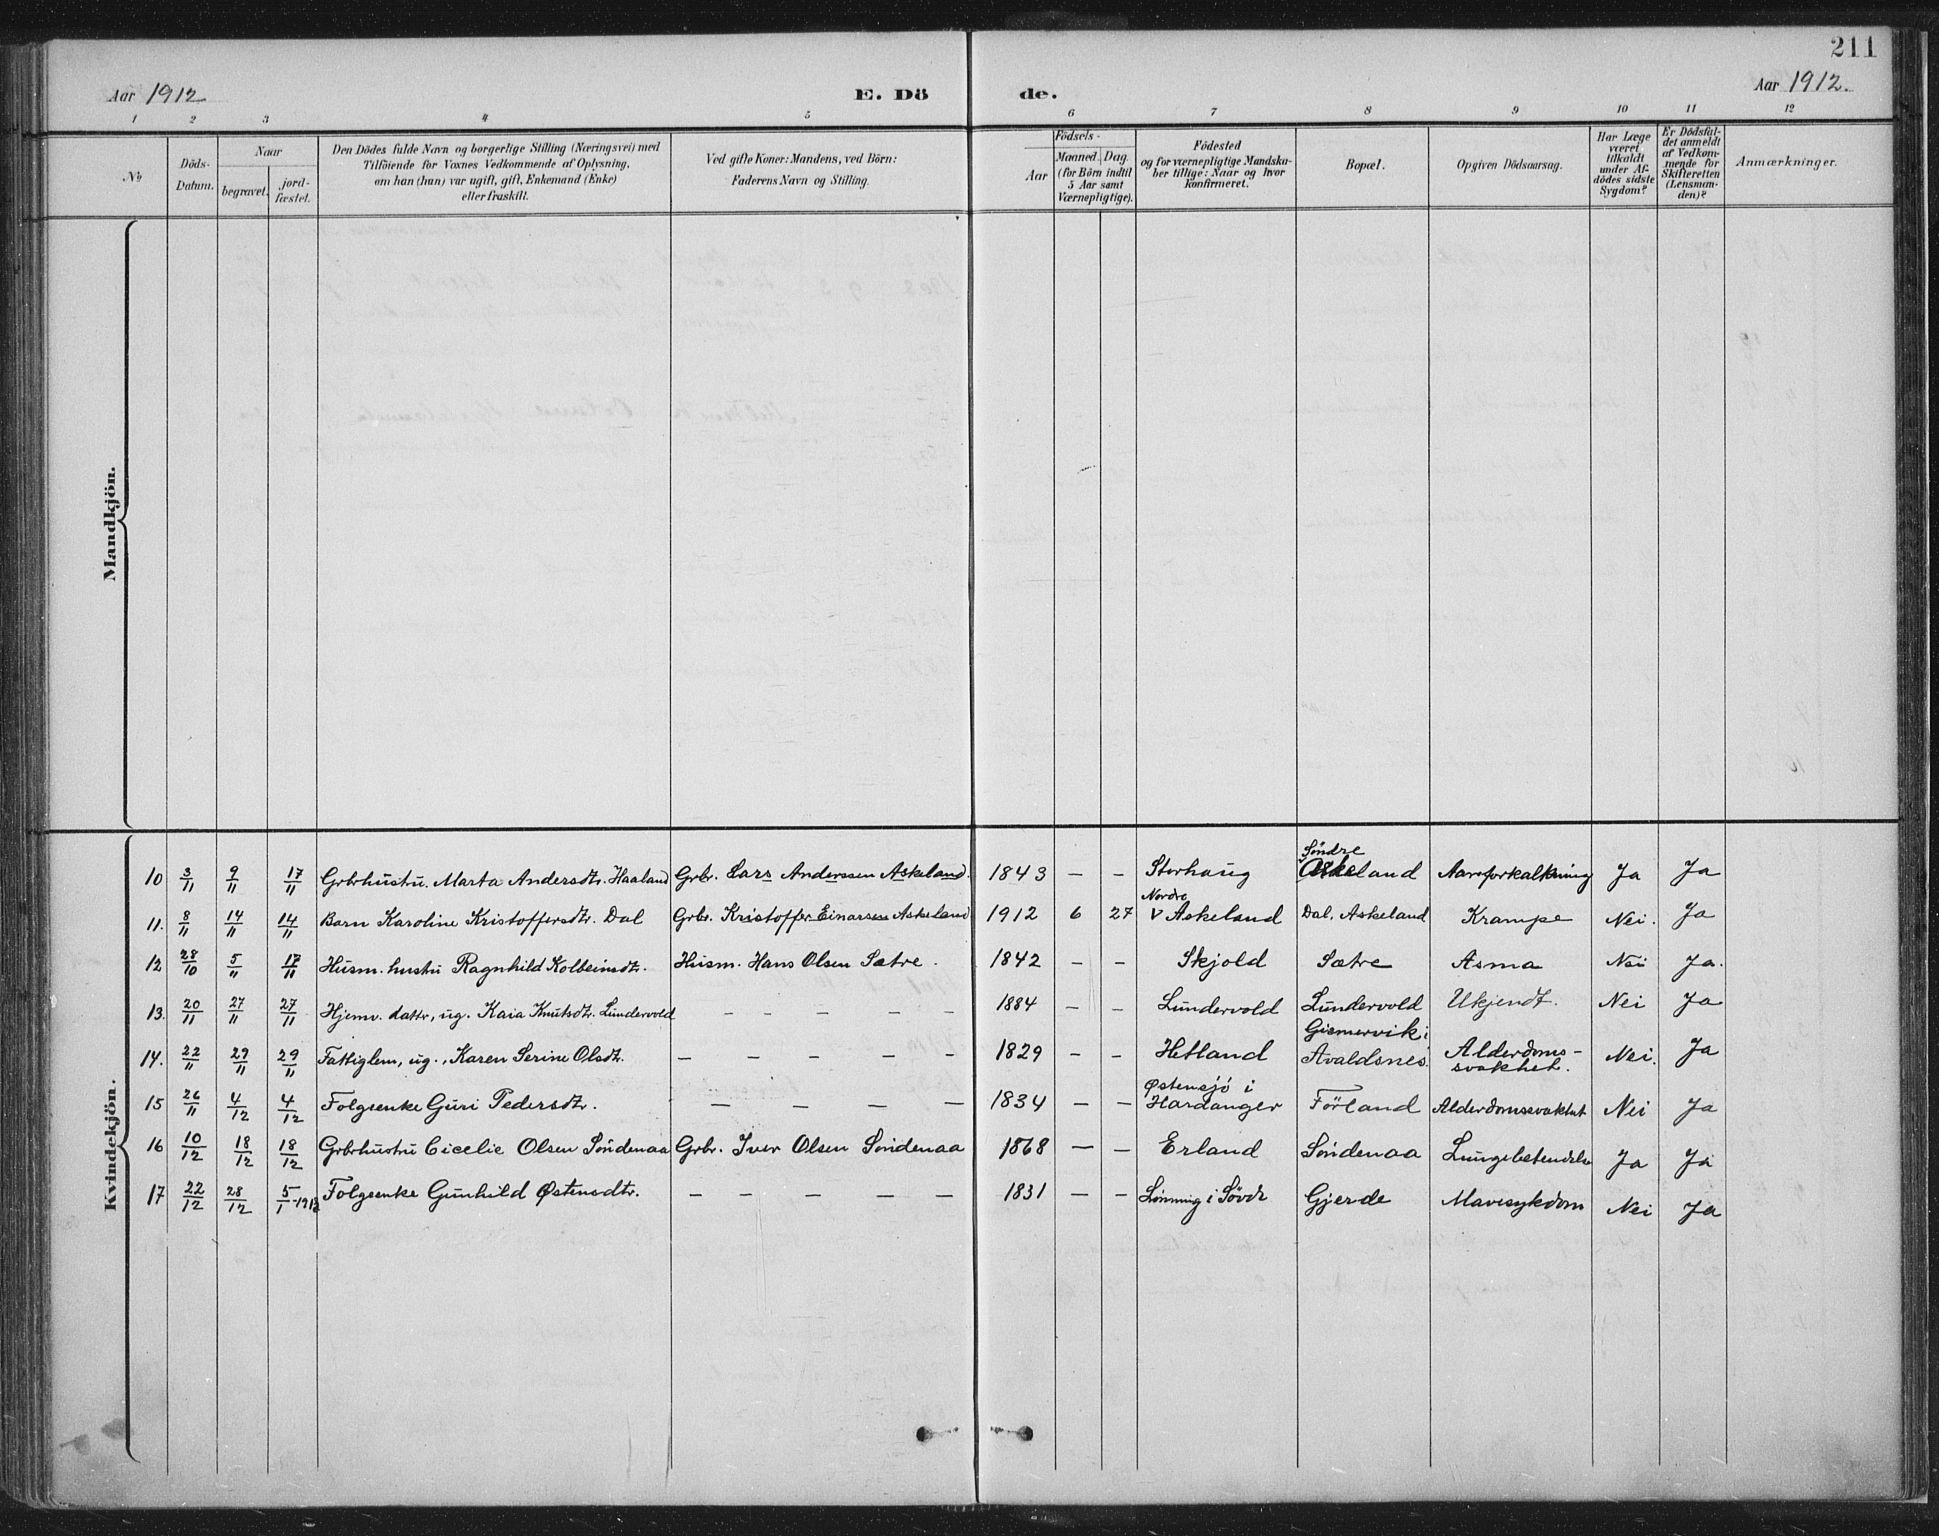 211
Aar 1912
E. Dö
de.
Aar 1912.
1 2 3 4 5 6 7 8 9 10 11 12
No
Döds-Datum.
Naar
begravet.
jord-fæstet.
Den Dödes fulde Navn og borgerlige Stilling (Næringsvei) med
Tilföiende for Voxnes Vedkommende af Oplysning,
om han (hun) var ugift, gift, Enkemand (Enke)
eller fraskilt.
Ved gifte Koner: Mandens, ved Börn:
Faderens Navn og Stilling.
Födsels-
Aar
Maaned. Dag.
(for Börn indtil
5 Aar samt
Værnepligtige).
Födested
og for værnepligtige Mandska-
ber tillige: Naar og hvor
konfirmeret.
Bopæl.
Opgiven Dödsaarsag.
Har Læge
været
tilkaldt
under Af-
dödes sidste
Sygdom?
Er Dödsfal-
det anmeldt
af Vedkom-
mende for
Skifteretten
(Lensman-
den)?
Anmærkninger.
Mandkjön.
Kvindekjön.
10 3/11 9/11 17/11 Grbrhustru. Marta Andersdtr. Haaland Grbr. Lars Anderssen Askeland. 1843 – – Storhaug Söndre Askeland Aareforkalkning Ja Ja
11. 8/11 14/11 14/11 Barn Karoline Kristoffersdtr. Dal Grbr. Kristoffer Einarsen Askeland 1912 6 27 Nordre v Askeland Dal, Askeland Krampe Nei. Ja
12 28/10 5/11 17/11 Husm. hustru Ragnhild Kolbeinsdtr. Husm. Hans Olsen Sætre. 1842 – – Skjold Sætre Asma Nei Ja.
13. 20/11 27/11 27/11 Hjemv. dattr, ug. Kaia Knutsdtr. Lundervold – – – – – – 1884 – – Lundervold Lundervold Ukjendt. Nei Ja
14. 22/11 29/11 29/11 Fattiglem, ug., Karen Serine Olsdtr. – – – – – – 1829 – – Hetland Gismervik i Avaldsnes Alderdoms-svakhet. Nei. Ja
15 26/11 4/12 4/12 Folgeenke Guri Pedersdtr. – – – – 1834 – – Østensjö i Hardanger Förland Alderdomssvakhet Nei Ja
16 10/12 18/12 18/12 Grbrhustru Cicelie Olsen Söndenaa Grbr. Iver Olsen Söndenaa 1868 – – Erland Söndenaa Lungebetendelse Ja Ja
17 22/12 28/12 5/1-1913 Folgeenke Gunhild Østensdtr. – – – – – 1831 – – Lönning i Søvde Gjerde Mavesykdom Nei Ja